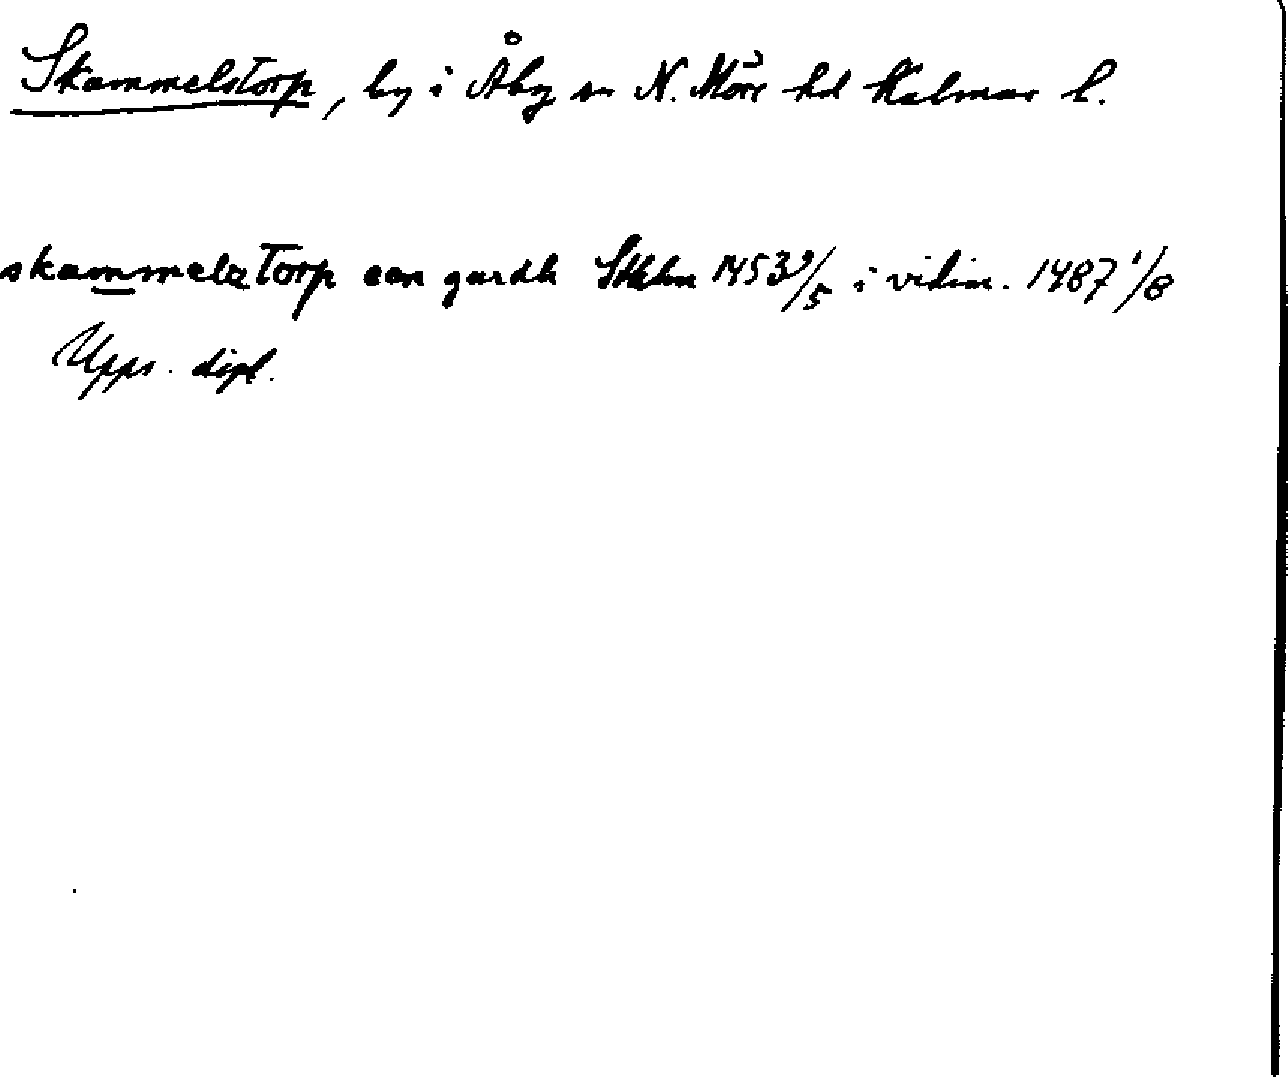 Skammelstorp, by i Åby sn N. Möre hd Kalmar l.
skammelztorp een gardh Sthlm 1453 9/5 i vidim. 1487 1/8
Upps. dipl.